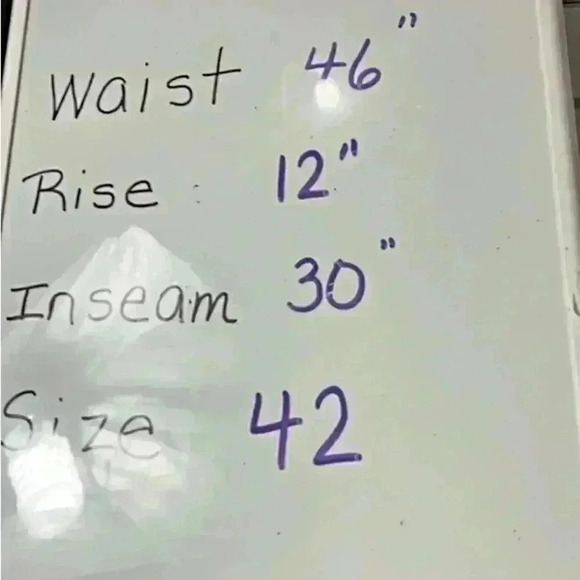 Waist 46"
Rise : 12"
Inseam 30"
Size 42